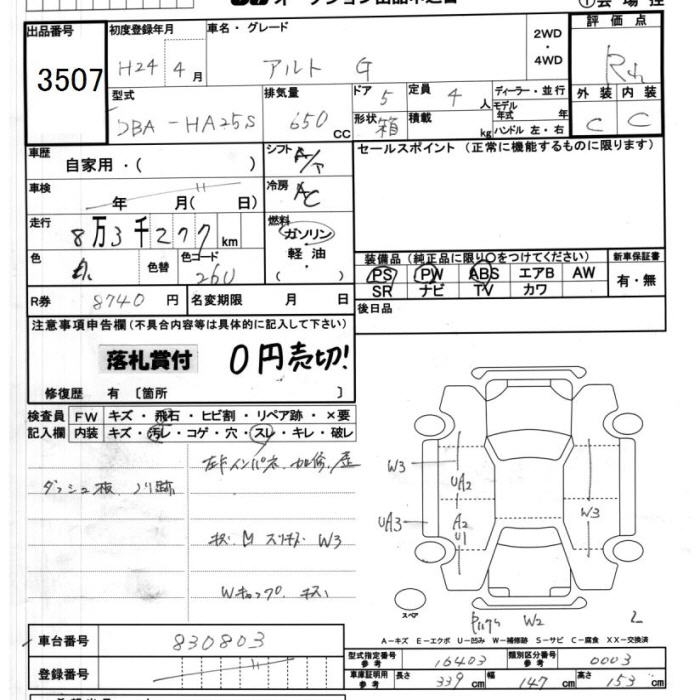 ①会場控
出品番号
3507
初度登録年月
H24年4月
車名・グレード
アルト G
2WD
・
4WD
評価点
外装 内装
C C
型式
DBA-HA25S
排気量
650 CC
ドア 5
形状 箱
定員 4 人
積載 kg
ディーラー・並行
モデル年式 年
ハンドル 左・右
車歴 自家用・( )
シフト A/T
セールスポイント (正常に機能するものに限ります)
車検 年 月( 日)
冷房 AC
走行 8万3千277km
燃料
ガソリン
軽油
( )
色 色替 色コード 260
装備品 (純正品に限り○をつけてください) 新車保証書
PS PW ABS エアB AW
SR ナビ TV カワ
有・無
R券 8740円 名変期限 月 日
後日品
注意事項申告欄(不具合内容等は具体的に記入して下さい)
落札賞付 0円売切!
修復歴 有 〔箇所 〕
検査員 FW キズ・飛石・ヒビ割・リペア跡・×要
記入欄 内装 キズ・汚レ・コゲ・穴・スレ・キレ・破レ
ダッシュ板 ノリ跡
W3
UA2
UA3
A2
U1
W3
キズ M スリキズ W3
Wキャップ キズ
スペア
W2
A-キズ E-エクボ U-凹み W-補修跡 S-サビ C-腐食 XX-交換済
車台番号 830803
登録番号
型式指定番号 参考 16403 類別区分番号 参考 0003
車庫証明用 参考 長さ 339cm 幅 147cm 高さ 153cm